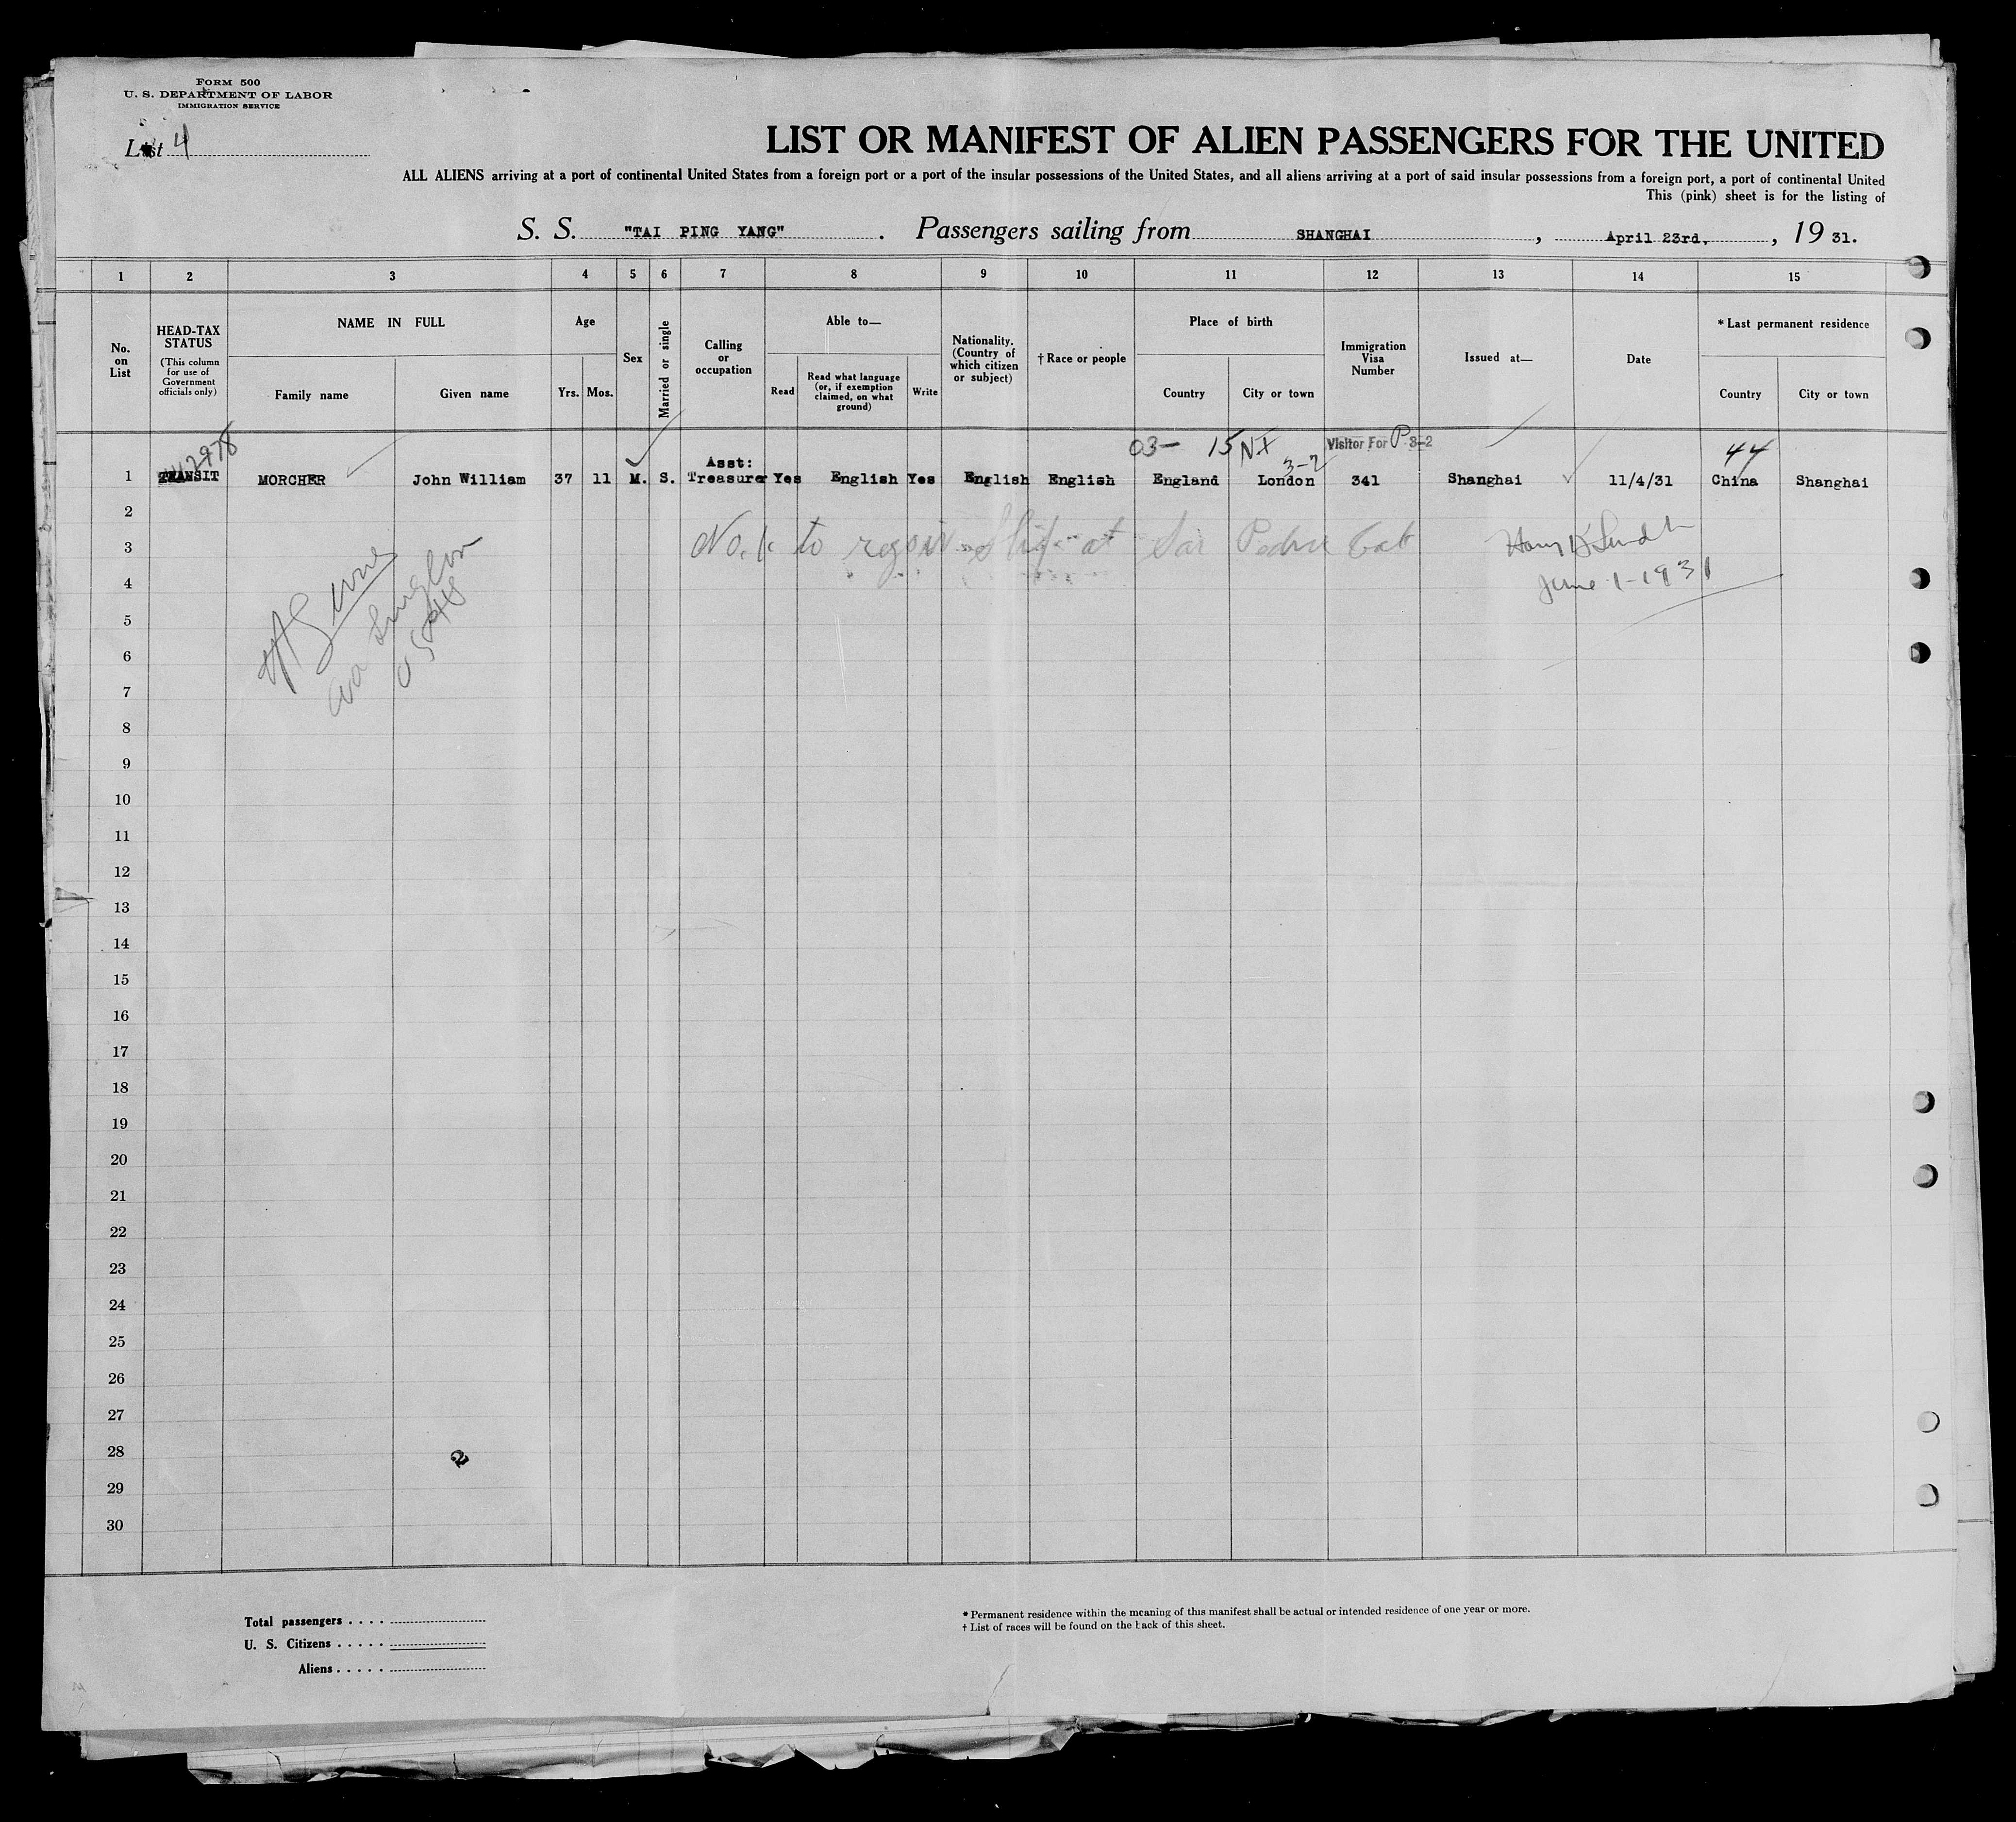 FORM 500
U. S. DEPARTMENT OF LABOR
IMMIGRATION SERVICE
List 4
LIST OR MANIFEST OF ALIEN PASSENGERS FOR THE UNITED
ALL ALIENS arriving at a port of continental United States from a foreign port or a port of the insular possessions of the United States, and all aliens arriving at a port of said insular possessions from a foreign port, a port of continental United
This (pink) sheet is for the listing of
S. S. "TAI PING YANG". Passengers sailing from SHANGHAI, April 23rd, , 19 31.
1 2 3 4 5 6 7 8 9 10 11 12 13 14 15
No. on List
HEAD-TAX STATUS
(This column for use of Government officials only)
NAME IN FULL
Family name Given name
Age
Yrs. Mos.
Sex
Married or single
Calling or occupation
Able to—
Read
Read what language (or, if exemption claimed, on what ground)
Write
Nationality. (Country of which citizen or subject)
† Race or people
Place of birth
Country City or town
Immigration Visa Number
Issued at—
Date
* Last permanent residence
Country City or town
03- 15 NX Visitor For P 3-2
44
3-2
1 TRANSIT MORCHER John William 37 11 M. S. Asst: Treasurer Yes English Yes English English England London 341 Shanghai 11/4/31 China Shanghai
2
3 to ship at San Pedro
June 1-1931
4
5
6
7
8
9
10
11
12
13
14
15
16
17
18
19
20
21
22
23
24
25
26
27
28
2
29
30
Total passengers . . . .
U. S. Citizens . . . . .
Aliens . . . . .
* Permanent residence within the meaning of this manifest shall be actual or intended residence of one year or more.
† List of races will be found on the back of this sheet.